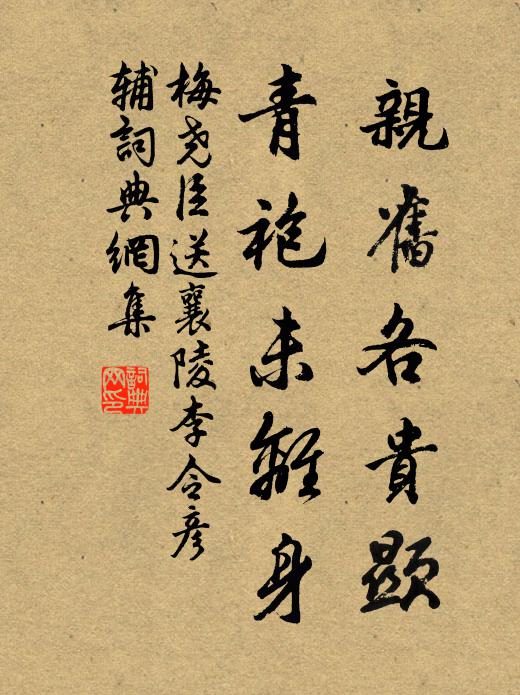 親舊各貴顯
青袍未離身
梅尧臣送襄陵李令彦
辅詞典網集
詞典网印